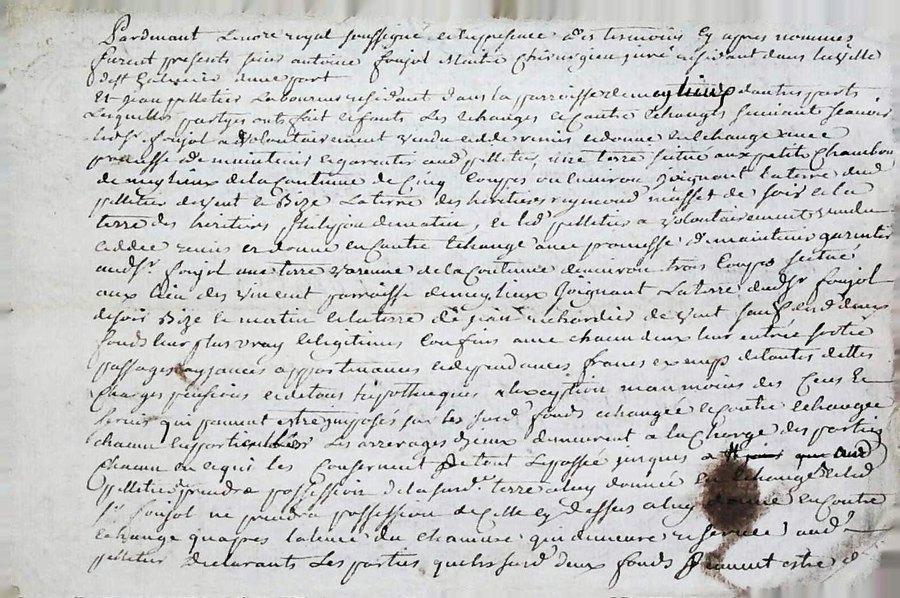 Pardevant Lenore royal soussigné et en presence des tesmoins Cy apres nommes
furent presents sieur antoine foujol Maitre Chirurgien juré residant dans la Ville
dest Galmier dune part
Et jean pelletier Laboureur residant dans la parroisse de meylieux dautre part
Lesquelles partyes ont fait les Echanges et Contre Echanges suivant
led sr. foujol a volontairement vendu cedde remis et donne en Echange avec
promesse de maintenir et garentir aud pelletier, une terre situé aux petits Chambon
de meylieux de la Contenue de Cinq Coupes ou environ joignant la terre dud
pelletier de Vent et Bize La terre des heritiers reymond de soir et la
terre des heritiers philippon de matin, et led pelletier a volontairement vendu
cedde remis et donne en Contre Echange avec promesse de maintenir garentir
aud sr foujol une terre Varenne de la Contenue denviron trois Coupes situé
aux lieu des Vincent parroisse de meylieux joignant La terre dud sr foujol
de soir Bize et matin et la terre de jean richardier de Vent sauf esd deux
fonds leur plus vray et legitimes Confins avec chacun deux leur entrée sortie
passages aysances appartenances et dependances, francs exempts de toutes dettes
Charges pensions et de tous hypotheques a l'exception neanmoins des Cens et
servis qui peuvent estre imposés sur les susd. fonds echangée et Contre echangée
chacun les arrerages diceux demeurent a la Charge des parties
Chacun en ce qui les Concernent de tout le passée jusques a
pelletier prendra possession de la susd. terre a luy donnée en Echange et led
sr. foujol ne prendra possession de Celle Cy dessus a luy donnée en Contre
echange quapres la levée du chanvre qui demeure reservée aud.
pelletier declarants Les parties que les susd deux fonds peuvent estre de